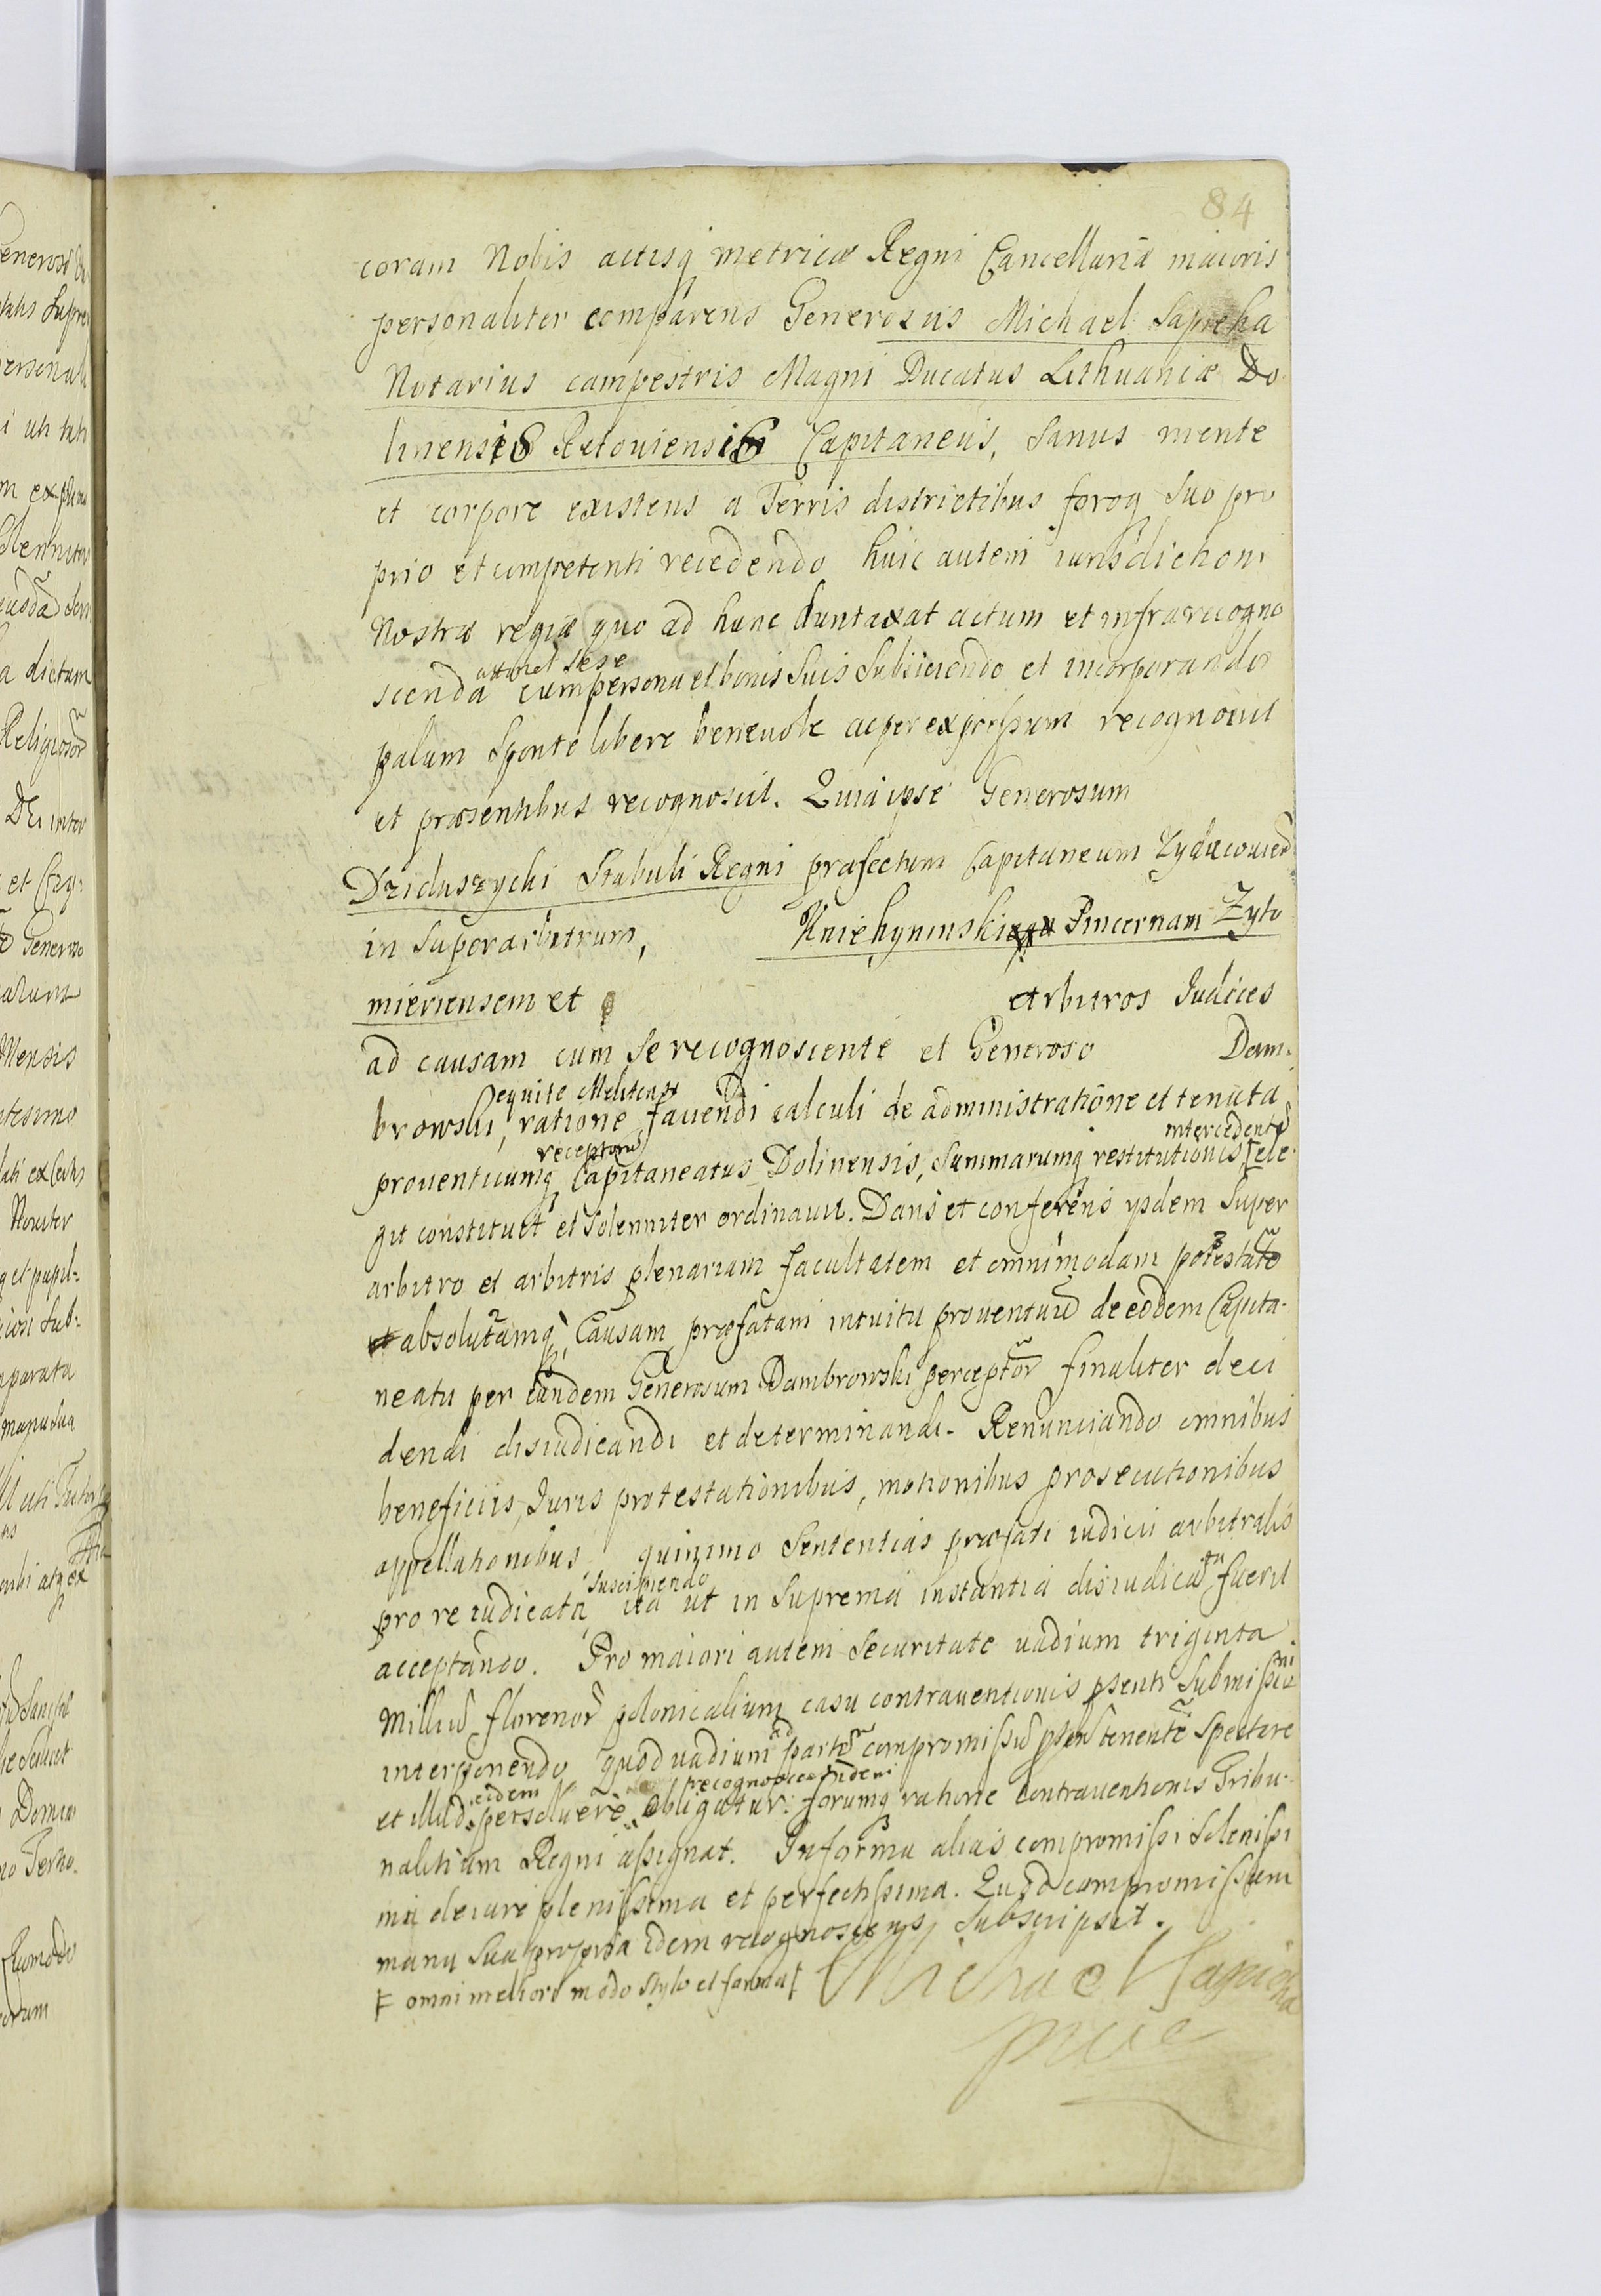 84
coram Nobis actisq metricæ Regni Cancellariæ maioris
personaliter comparens Generosus Michael Sapieha
Notarius campestris Magni Ducatus Lithuaniæ Do
linensis Retoviensis Capitaneus, sanus mente
et corpore existens a Terris districtibus foroq suo pro
prio et competenti recedendo huic autem iurisdictioni
Nostræ regiæ quo ad hunc duntaxat actum et infrarecogno
attinet sese
scenda cum persona et bonis suis subiiciendo et incorporando
palam sponte libere benevole ac per expressum recognovit
et præsentibus recognoscit. Quia ipse Generosum
Dziduszycki Stabuli Regni præfectum Capitaneum Zydaczovien
in superarbitrum, Kniehyninski Pincernam Zyto
mieriensem et arbitros Iudices
ad causam cum se recognoscente et Generoso Dam.
equite Melitensi
browski, ratione faciendi calculi de administratione et tenuta
receptorũ intercedentẽ
proventuumq Capitaneatus Dolinensis, summarumq restitutionis, ele
git constituit et solenniter ordinavit. Dans et conferens ysdem super
arbitro et arbitris plenariam facultatem et omnimodam potestatẽ
absolutamq, Causam præfatam intuitu proventuũ de eodem Capita-
neatu per eundem Generosum Dambrowski perceptor finaliter deci
dendi disiudicandi et determinandi. Renunciando omnibus
beneficiis Iuris protestationibus, motionibus prosecutionibus
appellationibus quinimo sententias præfati iudicii arbitralis
suscipiendo
pro re iudicata, ita ut in suprema instantia disiudicatũ fuerit
acceptando. Pro maiori autem securitate vadium triginta
Milliũ florenor polonicalium casu contraventionis psenti submissioni
ad
interponendo quod vadium partẽ compromissũ psens tenentẽ spectare
eidem recognoscens idem
et illud persolvere obligatur. forumq ratione contraventionis Tribu-
nalitium Regni assignat. In forma alias compromissi solenissi
ma de iure plenissima et perfectissima. Quod compromissum
manu sua propria idem recognoscens subscripsit.
omni meliori modo stylo et forma
Michael Sapieha